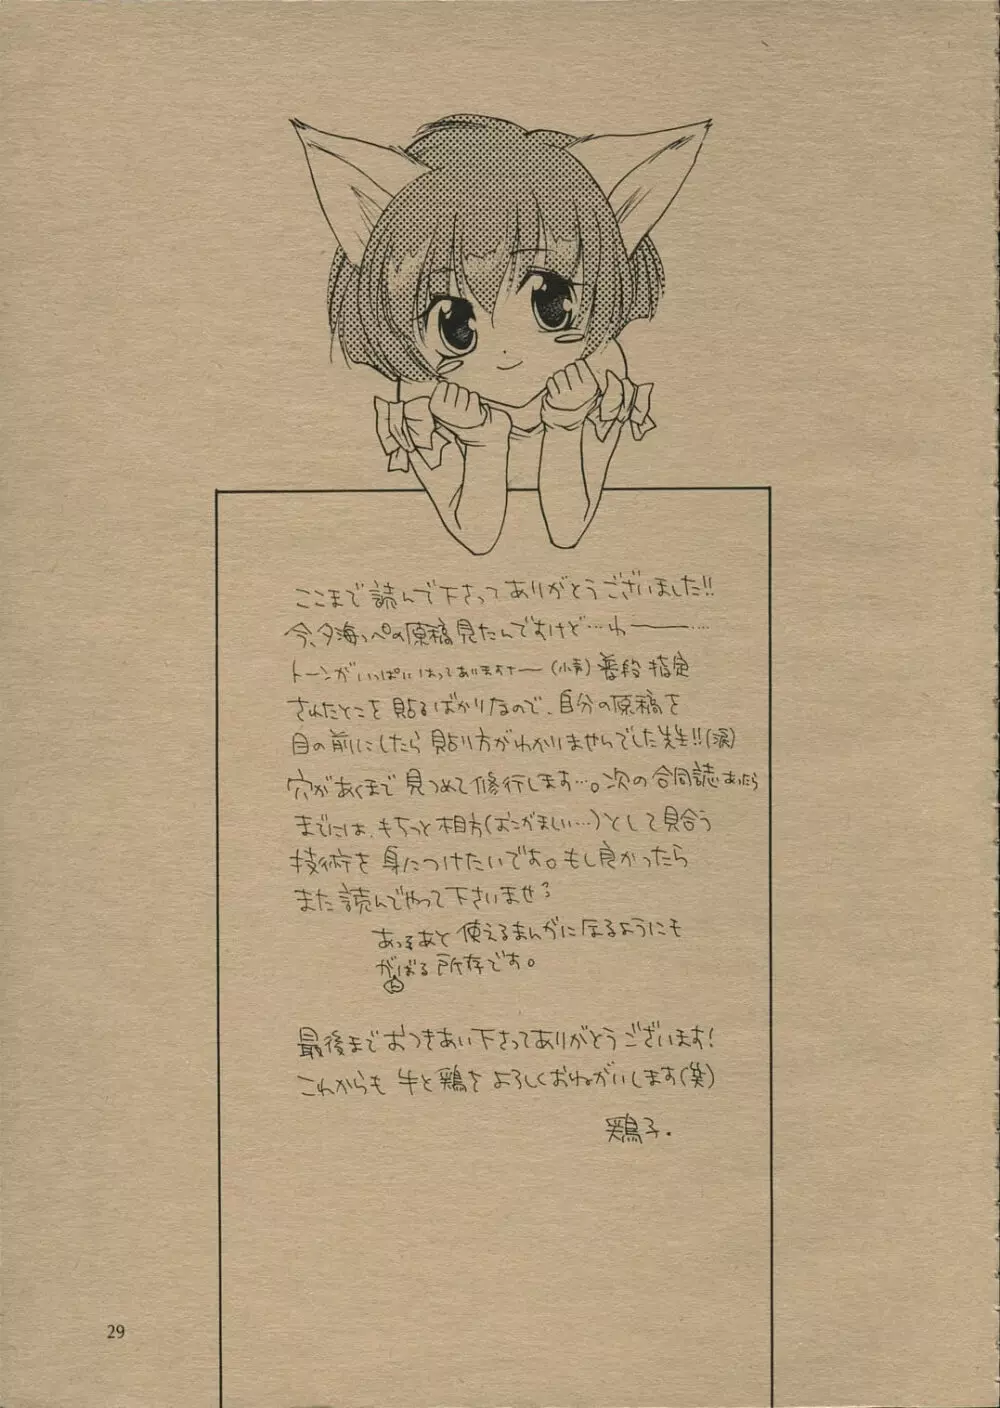 ここまで読んで下さってありがとうございました!!
今、夕海っぺの原稿見たんですけど…わーーー……
トーンがいっぱいはってありますナー(小声)普段指定
されたとこを貼るばかりなので、自分の原稿を
目の前にしたら貼り方がわかりませんでした先生!!(涙)
穴があくまで見つめて修行します…。次の合同誌あったら
までには、もちっと相方(おこがましい…)として見合う
技術を身につけたいです。もし良かったら
また読んでやって下さいませ?
あっあと使えるまんがになるようにも
がんばる所存です。
最後までおつきあい下さってありがとうございます!
これからも牛と鶏をよろしくおねがいします(笑)
鶏子.
29